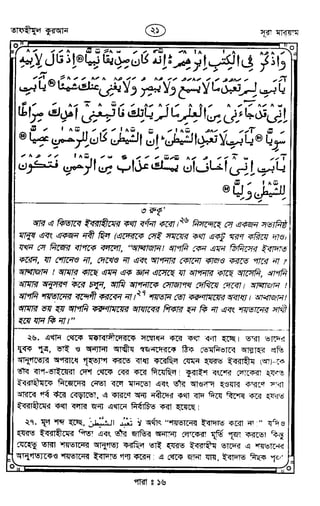 তাফহীমুল কুরআন
২১
সূরা মারয়াম
وَاذْكُرْ فِي الْكِتٰبِ إِبْرٰهِيْمَ ۬ؕ إِنَّهٗ كَانَ صِدِّيْقًا نَّبِيًّا ۝ إِذْ قَالَ لِأَبِيْهِ
يٰٓأَبَتِ لِمَ تَعْبُدُ مَا لَا يَسْمَعُ وَلَا يُبْصِرُ وَلَا يُغْنِيْ عَنْكَ شَيْئًا ۝ يٰٓأَبَتِ
إِنِّيْ قَدْ جَآءَنِيْ مِنَ الْعِلْمِ مَا لَمْ يَأْتِكَ فَاتَّبِعْنِيْٓ أَهْدِكَ صِرَاطًا
سَوِيًّا ۝ يٰٓأَبَتِ لَا تَعْبُدِ الشَّيْطٰنَ ؕ إِنَّ الشَّيْطٰنَ كَانَ لِلرَّحْمٰنِ عَصِيًّا ۝
يٰٓأَبَتِ إِنِّيْٓ أَخَافُ أَنْ يَّمَسَّكَ عَذَابٌ مِّنَ الرَّحْمٰنِ فَتَكُوْنَ
لِلشَّيْطٰنِ وَلِيًّا ۝
৩ রুকূ'
আর এ কিতাবে ইবরাহীমের কথা বর্ণনা করো।২৬ নিসন্দেহে সে একজন সত্যনিষ্ঠ
মানুষ এবং একজন নবী ছিল (এদেরকে সেই সময়ের কথা একটু স্মরণ করিয়ে দাও)
যখন সে নিজের বাপকে বললো, "আব্বাজান! আপনি কেন এমন জিনিসের ইবাদাত
করেন, যা শোনেও না, দেখেও না এবং আপনার কোনো কাজও করতে পারে না ?
আব্বাজান ! আমার কাছে এমন এক জ্ঞান এসেছে যা আপনার কাছে আসেনি, আপনি
আমার অনুসরণ করে চলুন, আমি আপনাকে সোজাপথ দেখিয়ে দেবো। আব্বাজান !
আপনি শয়তানের বন্দেগী করবেন না।২৭ শয়তান তো করুণাময়ের অবাধ্য। আব্বাজান।
আমার ভয় হয় আপনি করুণাময়ের আযাবের শিকার হন কি না এবং শয়তানের সাথী
হয়ে যান কি না।"
২৬. এখান থেকে মক্কাবাসীদেরকে সম্বোধন করে কথা বলা হচ্ছে। তারা তাদের
যুবক পুত্র, ভাই ও অন্যান্য আত্মীয় স্বজনদেরকে ঠিক তেমনিভাবে আল্লাহর প্রতি
আনুগত্যের অপরাধে গৃহত্যাগ করতে বাধ্য করেছিল যেমন হযরত ইবরাহীম (আ)-কে
তাঁর বাপ-ভাইয়েরা দেশ থেকে বের করে দিয়েছিল। কুরাইশ বংশের লোকেরা হযরত
ইবরাহীমকে নিজেদের নেতা বলে মানতো এবং তাঁর আওলাদ হওয়ার কারণে সারা
আরবে গর্ব করে বেড়াতো, এ কারণে অন্য নবীদের কথা বাদ দিয়ে বিশেষ করে হযরত
ইবরাহীমের কথা বলার জন্য এখানে নির্বাচিত করা হয়েছে।
২৭. মূল শব্দ হচ্ছে, لا تعبد الشيطن অর্থাৎ "শয়তানের ইবাদাত করো না" যদিও
হযরত ইবরাহীমের পিতা এবং তাঁর জাতির অন্যান্য লোকেরা মূর্তি পূজা করতো কিন্তু
যেহেতু তারা শয়তানের আনুগত্য করছিল তাই হযরত ইবরাহীম তাদের এ শয়তানের
আনুগত্যকেও শয়তানের ইবাদাত গণ্য করেন। এ থেকে জানা যায়, ইবাদাত নিছক
পারা ঃ ১৬